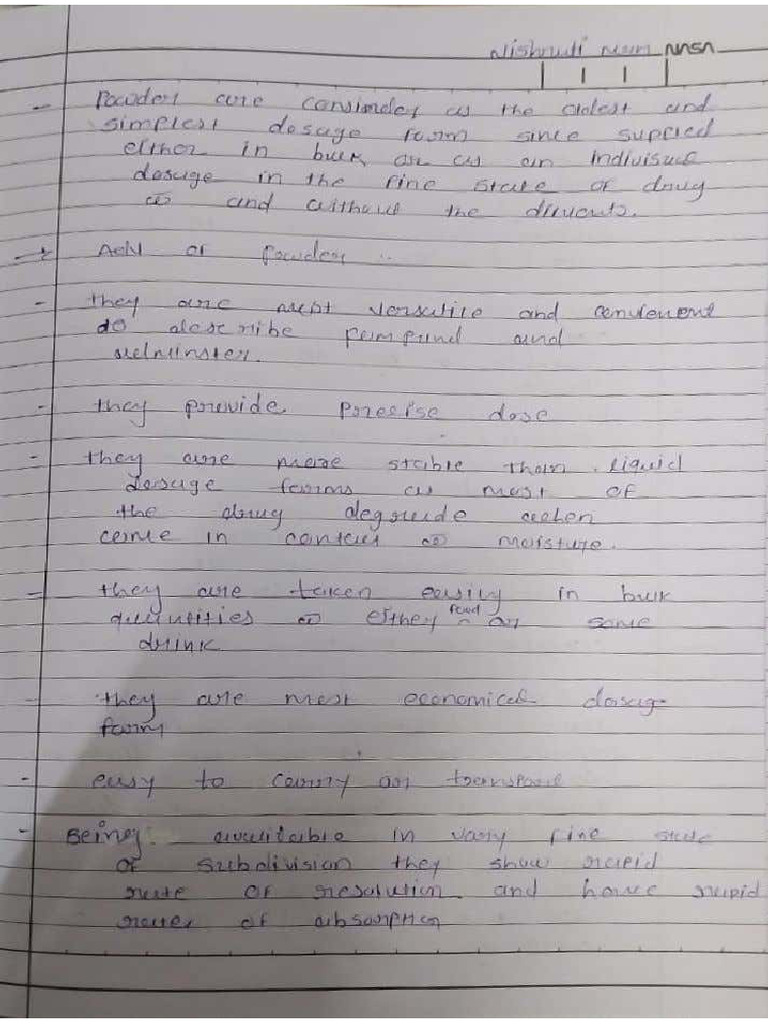 - Powders are considey as the oldest and
simplest dosage form since supplied
either in bulk or as an individual
dosage in the fine state of drug
and without the diluents.
→ Adv of Powders
- they are most versatile and convenient
to describe and
Administer.
- they provide Precise dose
- they are more stable than liquid
dosage forms as most of
the drug degrade when
come in contact moisture.
- they are taken easily in bulk
quantities either food or some
drink
- they are most economical dosage
form
- easy to carry or transport
- Being available in vary fine state
of subdivision they show rapid
rate of resolution and have rapid
rates of absorption